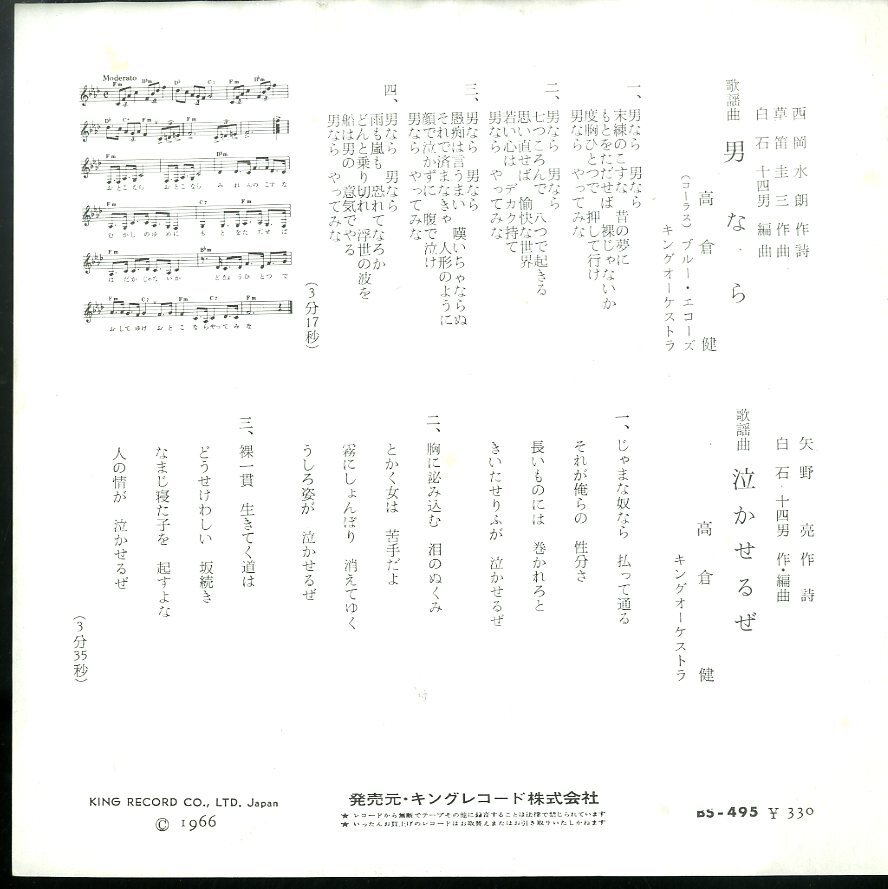 西岡水朗 作詩
草笛圭三 作曲
白石十四男 編曲
歌謡曲 男なら
高倉健
(コーラス)ブルー・エコーズ
キングオーケストラ
一、男なら 男なら
末練のこすな 昔の夢に
もとをただせば 裸じゃないか
度胸ひとつで 押して行け
男なら やってみな
二、男なら 男なら
七つころんで 八つで起きる
思い直せば 愉快な世界
若い心は デカク持て
男なら やってみな
三、男なら 男なら
愚痴は言うまい 嘆いちゃならぬ
それで済まなきゃ 人形のように
顔で泣かずに 腹で泣け
男なら やってみな
四、男なら 男なら
雨も嵐も 恐れてなろか
どんと乗り切れ 浮世の波を
船は男の 意気でやる
男なら やってみな
(3分17秒)
Moderato
Fm B♭m D♭ C7 Fm B♭m
D♭ C7 Fm C7 Fm
Fm B♭m
おとこなら おとこなら みれんのこすな
Fm C7 Fm
むかしのゆめに もとをただせば
Fm B♭m
はだかじゃないか どきょうひとつで
C7 Fm C7 Fm
おしてゆけ おとこならやってみな
矢野亮 作詩
白石十四男 作・編曲
歌謡曲 泣かせるぜ
高倉健
キングオーケストラ
一、じゃまな奴なら 払って通る
それが俺らの 性分さ
長いものには 巻かれろと
きいたせりふが 泣かせるぜ
二、胸に泌み込む 泪のぬくみ
とかく女は 苦手だよ
霧にしょんぼり 消えてゆく
うしろ姿が 泣かせるぜ
三、裸一貫 生きてく道は
どうせけわしい 坂続き
なまじ寝た子を 起すよな
人の情が 泣かせるぜ
(3分35秒)
KING RECORD CO., LTD. Japan
© 1966
発売元・キングレコード株式会社
★ レコードから無断でテープその他に録音することは法律で禁じられています
★ いったんお買上げのレコードはお取替えまたはお引き取りいたしかねます
BS-495 ¥ 330